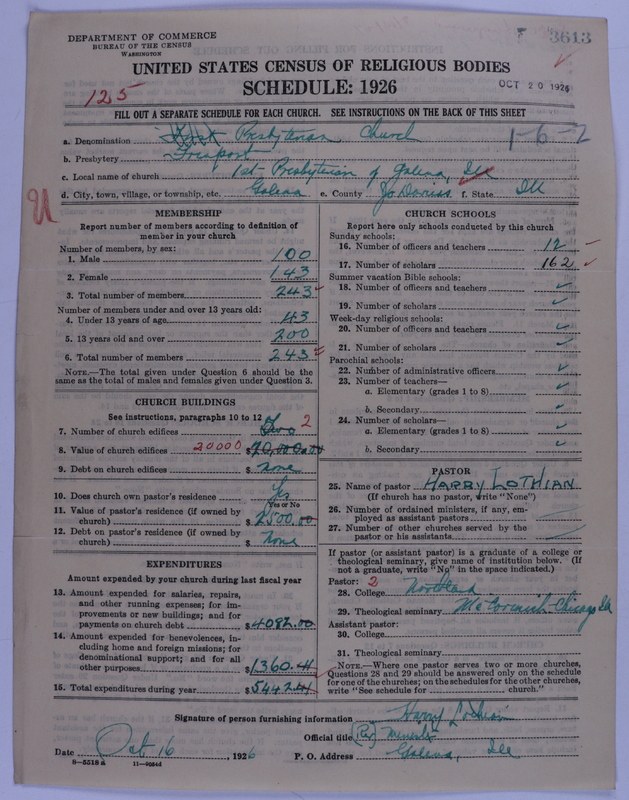 DEPARTMENT OF COMMERCE
BUREAU OF THE CENSUS
WASHINGTON
3613
UNITED STATES CENSUS OF RELIGIOUS BODIES
SCHEDULE: 1926
OCT 20 1926
125
FILL OUT A SEPARATE SCHEDULE FOR EACH CHURCH. SEE INSTRUCTIONS ON THE BACK OF THIS SHEET
1-6-2
a. Denomination Presbyterian Church
b. Presbytery Freeport
c. Local name of church 1st Presbyterian of Galena, Ill
d. City, town, village, or township, etc. Galena e. County Jo Daviess f. State Ill
MEMBERSHIP
Report number of members according to definition of member in your church
Number of members, by sex:
1. Male 100
2. Female 143
3. Total number of members 243
Number of members under and over 13 years old:
4. Under 13 years of age 43
5. 13 years old and over 200
6. Total number of members 243
NOTE.—The total given under Question 6 should be the same as the total of males and females given under Question 3.
CHURCH BUILDINGS
See instructions, paragraphs 10 to 12
7. Number of church edifices Two 2
8. Value of church edifices 20000 $
9. Debt on church edifices $ None
10. Does church own pastor's residence Yes
Yes or No
11. Value of pastor's residence (if owned by church) $ 2500.00
12. Debt on pastor's residence (if owned by church) $ None
EXPENDITURES
Amount expended by your church during last fiscal year
13. Amount expended for salaries, repairs, and other running expenses; for improvements or new buildings; and for payments on church debt $ 4082.00
14. Amount expended for benevolences, including home and foreign missions; for denominational support; and for all other purposes $ 1360.41
15. Total expenditures during year $ 5442.41
CHURCH SCHOOLS
Report here only schools conducted by this church
Sunday schools:
16. Number of officers and teachers 12
17. Number of scholars 162
Summer vacation Bible schools:
18. Number of officers and teachers
19. Number of scholars
Week-day religious schools:
20. Number of officers and teachers
21. Number of scholars
Parochial schools:
22. Number of administrative officers
23. Number of teachers—
a. Elementary (grades 1 to 8)
b. Secondary
24. Number of scholars—
a. Elementary (grades 1 to 8)
b. Secondary
PASTOR
25. Name of pastor HARRY LOTHIAN
(If church has no pastor, write "None")
26. Number of ordained ministers, if any, employed as assistant pastors
27. Number of other churches served by the pastor or his assistants
If pastor (or assistant pastor) is a graduate of a college or theological seminary, give name of institution below. (If not a graduate, write "No" in the space indicated.)
Pastor: 2
28. College
29. Theological seminary McCormick-Chicago Ill
Assistant pastor:
30. College
31. Theological seminary
NOTE.—Where one pastor serves two or more churches, Questions 28 and 29 should be answered only on the schedule for one of the churches; on the schedules for the other churches, write "See schedule for church."
Signature of person furnishing information Harry Lothian
Official title (Rev) Minister
Date Oct 16, 1926 P. O. Address Galena, Ill